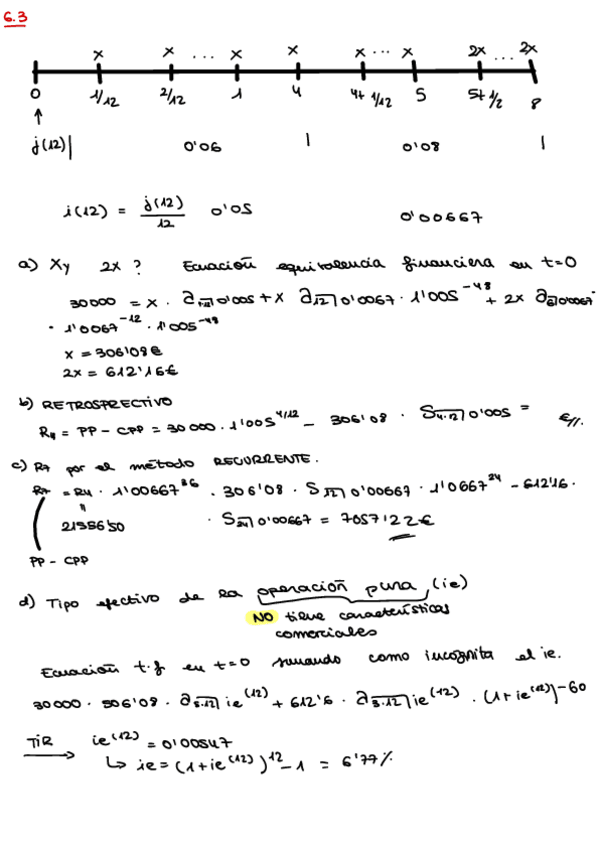 6.3
x x ... x x x ... x 2x ... 2x
0 1/12 2/12 1 4 4+ 1/12 5 5+ 1/2 8
j(12)| 0'06 | 0'08 |
i(12) = j(12)/12 0'05 0'00667
a) x y 2x ? Ecuación equivalencia financiera en t=0
30000 = x · a 0'005 + x a 12 0'0067 · 1'005^-48 + 2x a 0'0067
· 1'0067^-12 · 1'005^-48
x = 306'08€
2x = 612'16€
b) RETROSPECTIVO
R4 = PP - CPP = 30000 · 1'005^4/12 - 306'08 · S4·12 0'005 = €//.
c) R7 por el método RECURRENTE.
R7 = R4 · 1'00667^36 · 306'08 · S12 0'00667 · 1'0667^24 - 612'16 ·
21956'50 · S24 0'00667 = 7057'22€
PP - CPP
d) Tipo efectivo de la operación pura (ie)
NO tiene características
comerciales
Ecuación t.f en t=0 sumando como incognita el ie.
30000 · 506'08 · a5·12 ie^(12) + 612'6 · a3·12 ie^(12) · (1+ie^(12))^-60
TIR ie^(12) = 0'00547
↳ ie = (1+ie^(12))^12 - 1 = 6'77%